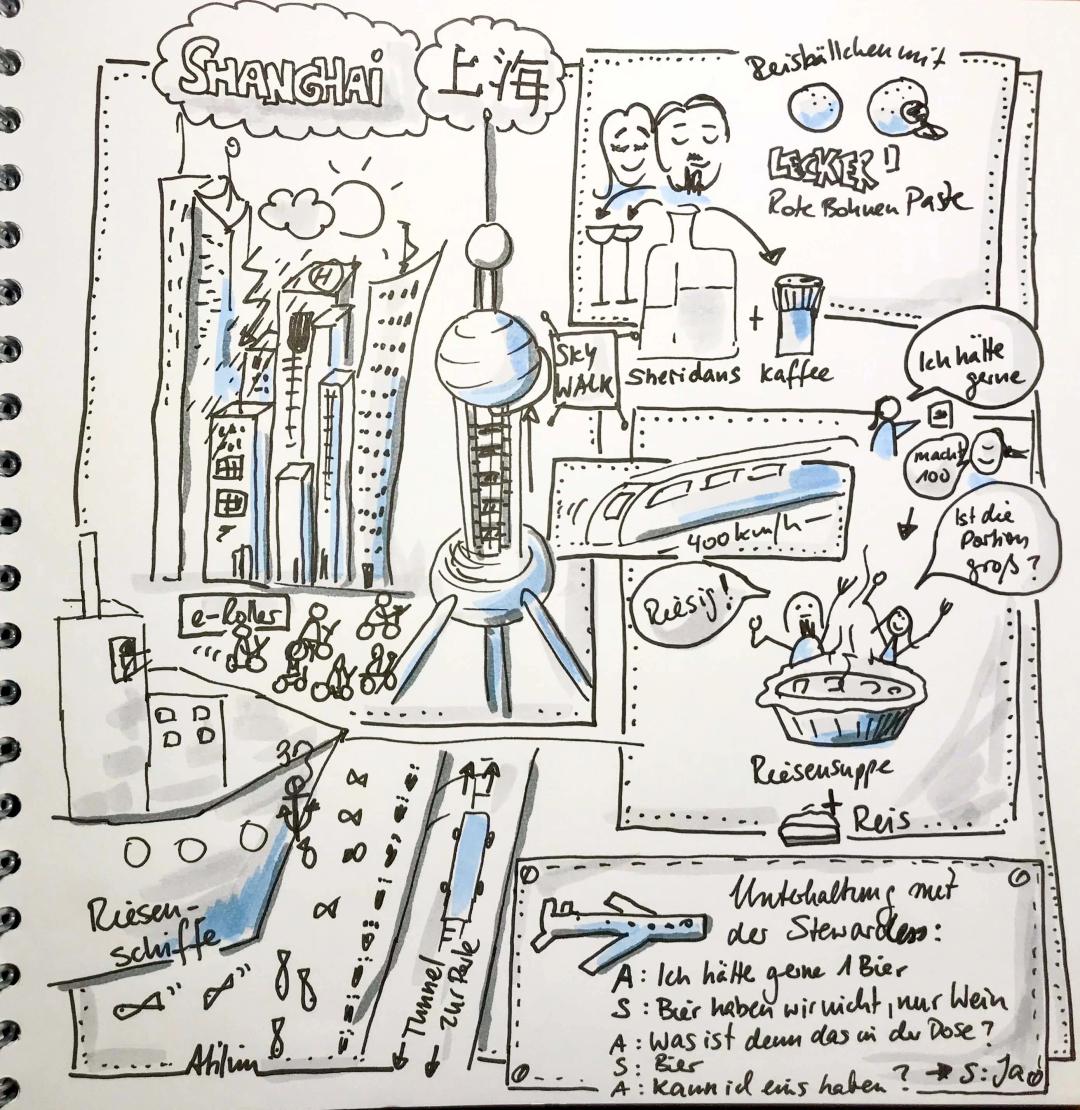 SHANGHAI
上海
Reisbällchen mit
LECKER!!
Rote Bohnen Paste
H
SKY
WALK
Sheridans + Kaffee
Ich hätte
gerne
macht
100
Ist die
Portion
groß?
400 km/h
Riesig!
e-Roller
Riesensuppe
+
Reis
Riesen-
schiffe
Tunnel
Unterhaltung mit
der Stewardess:
A: Ich hätte gerne 1 Bier
S: Bier haben wir nicht, nur Wein
A: Was ist denn das in der Dose?
S: Bier
A: Kann ich eins haben? → S: Ja